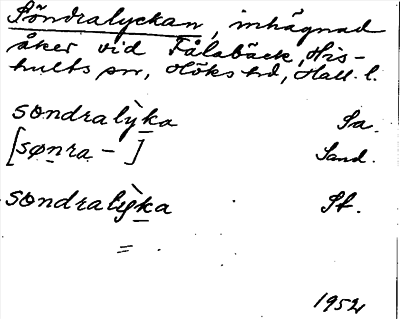 Söndralyckan, inhägnad
åker vid Fålabäck, His-
hults sn, Höks hd, Hall. l.
sondralỳka Sa.
[sønra-] Sand.
sondralỳka St.
=
1952